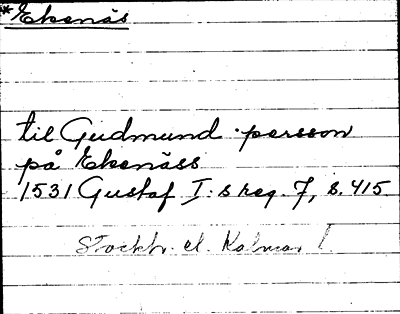 *Ekenäs
til Gudmund persson
på Ekenäss
1531 Gustaf I:s reg. 7, s. 415
Stockh. el. Kalmar l.